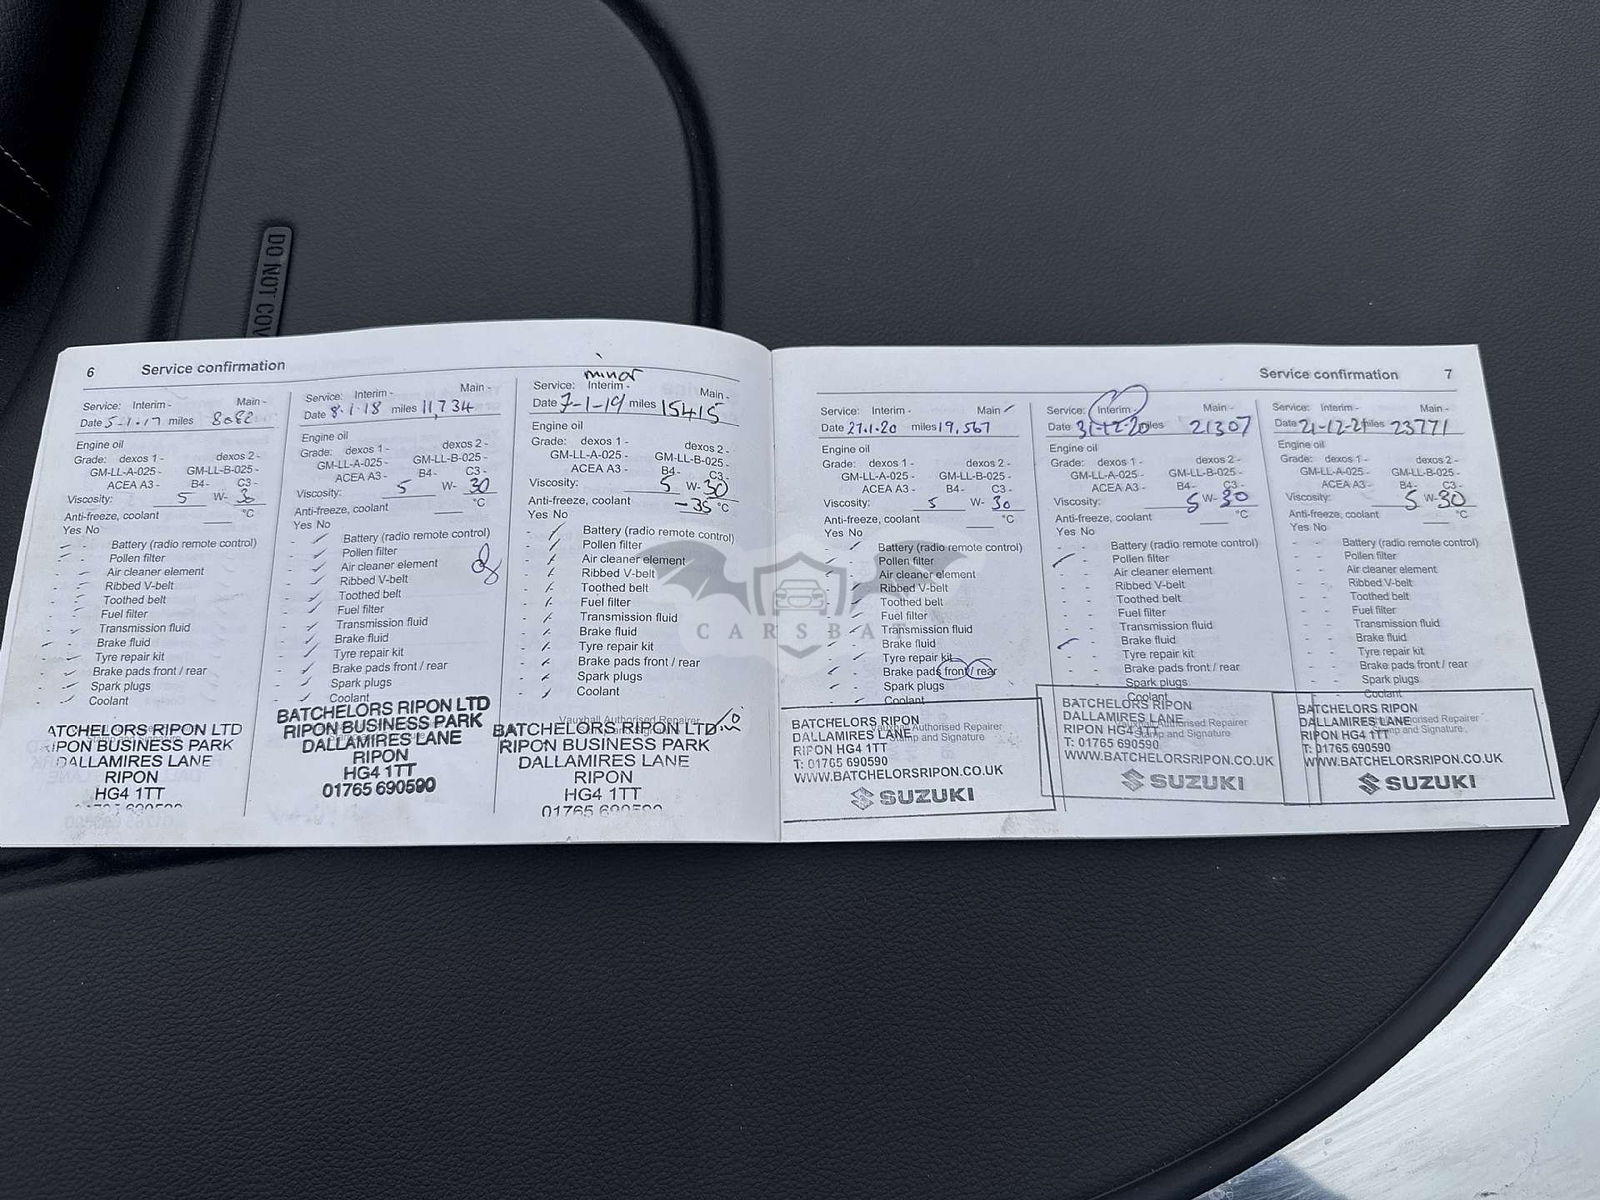 DO NOT COV
6 Service confirmation
Service: Interim - Main -
Date 5-1-17 miles 8082
Engine oil
Grade: dexos 1 - dexos 2 -
GM-LL-A-025 - GM-LL-B-025 -
ACEA A3 - B4 - C3 -
Viscosity: 5 W- 30
Anti-freeze, coolant °C
Yes No
Battery (radio remote control)
Pollen filter
Air cleaner element
Ribbed V-belt
Toothed belt
Fuel filter
Transmission fluid
Brake fluid
Tyre repair kit
Brake pads front / rear
Spark plugs
Coolant
ATCHELORS RIPON LTD
RIPON BUSINESS PARK
DALLAMIRES LANE
RIPON
HG4 1TT
01765 690590
Service: Interim - Main -
Date 8-1-18 miles 11,734
Engine oil
Grade: dexos 1 - dexos 2 -
GM-LL-A-025 - GM-LL-B-025 -
ACEA A3 - B4 - C3 -
Viscosity: 5 W- 30
Anti-freeze, coolant °C
Yes No
Battery (radio remote control)
Pollen filter
Air cleaner element
Ribbed V-belt
Toothed belt
Fuel filter
Transmission fluid
Brake fluid
Tyre repair kit
Brake pads front / rear
Spark plugs
Coolant
BATCHELORS RIPON LTD
RIPON BUSINESS PARK
DALLAMIRES LANE
RIPON
HG4 1TT
01765 690590
minor
Service: Interim - Main -
Date 7-1-19 miles 15415
Engine oil
Grade: dexos 1 - dexos 2 -
GM-LL-A-025 - GM-LL-B-025 -
ACEA A3 - B4 - C3 -
Viscosity: 5 W- 30
Anti-freeze, coolant -35 °C
Yes No
Battery (radio remote control)
Pollen filter
Air cleaner element
Ribbed V-belt
Toothed belt
Fuel filter
Transmission fluid
Brake fluid
Tyre repair kit
Brake pads front / rear
Spark plugs
Coolant
Vauxhall Authorised Repairer
BATCHELORS RIPON LTD
RIPON BUSINESS PARK
DALLAMIRES LANE
RIPON
HG4 1TT
01765 690590
CARSBAT
Service confirmation 7
Service: Interim - Main -
Date 27.1.20 miles 19,567
Engine oil
Grade: dexos 1 - dexos 2 -
GM-LL-A-025 - GM-LL-B-025 -
ACEA A3 - B4 - C3 -
Viscosity: 5 W- 30
Anti-freeze, coolant °C
Yes No
Battery (radio remote control)
Pollen filter
Air cleaner element
Ribbed V-belt
Toothed belt
Fuel filter
Transmission fluid
Brake fluid
Tyre repair kit
Brake pads front / rear
Spark plugs
Coolant
Authorised Repairer
Stamp and Signature
BATCHELORS RIPON
DALLAMIRES LANE
RIPON HG4 1TT
T: 01765 690590
WWW.BATCHELORSRIPON.CO.UK
SUZUKI
Service: Interim Main -
Date 31-12-20 miles 21307
Engine oil
Grade: dexos 1 - dexos 2 -
GM-LL-A-025 - GM-LL-B-025 -
ACEA A3 - B4 - C3 -
Viscosity: 5 W- 30
Anti-freeze, coolant °C
Yes No
Battery (radio remote control)
Pollen filter
Air cleaner element
Ribbed V-belt
Toothed belt
Fuel filter
Transmission fluid
Brake fluid
Tyre repair kit
Brake pads front / rear
Spark plugs
Coolant
Authorised Repairer
Stamp and Signature
BATCHELORS RIPON
DALLAMIRES LANE
RIPON HG4 1TT
T: 01765 690590
WWW.BATCHELORSRIPON.CO.UK
SUZUKI
Service: Interim - Main -
Date 21-12-21 miles 23771
Engine oil
Grade: dexos 1 - dexos 2 -
GM-LL-A-025 - GM-LL-B-025 -
ACEA A3 - B4 - C3 -
Viscosity: 5 W- 30
Anti-freeze, coolant °C
Yes No
Battery (radio remote control)
Pollen filter
Air cleaner element
Ribbed V-belt
Toothed belt
Fuel filter
Transmission fluid
Brake fluid
Tyre repair kit
Brake pads front / rear
Spark plugs
Coolant
Repairer
and Signature
BATCHELORS RIPON
DALLAMIRES LANE
RIPON HG4 1TT
T: 01765 690590
WWW.BATCHELORSRIPON.CO.UK
SUZUKI